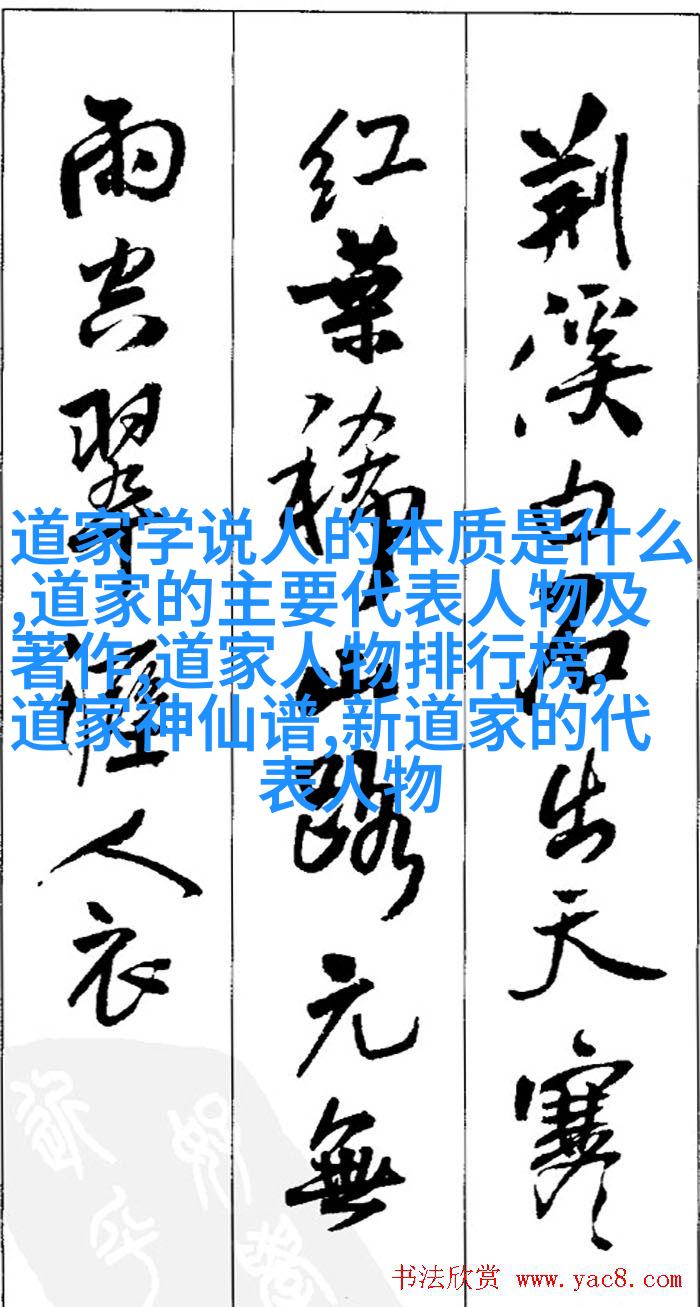 荆溪白石出天寒
红葉稀山路元無
雨空翠濕人衣
道家学说人的本质是什么
,道家的主要代表人物及
著作,道家人物排行榜,
道家神仙谱,新道家的代
表人物
书法欣赏 www.yac8.com